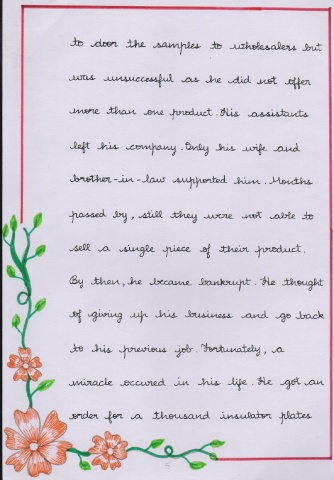 to door the samples to wholesalers but
was unsuccessful as he did not offer
more than one product. His assistants
left his company. Only his wife and
brother-in-law supported him. Months
passed by, still they were not able to
sell a single piece of their product.
By then, he became bankrupt. He thought
of giving up his business and go back
to his previous job. Fortunately, a
miracle occured in his life. He got an
order for a thousand insulator plates
5